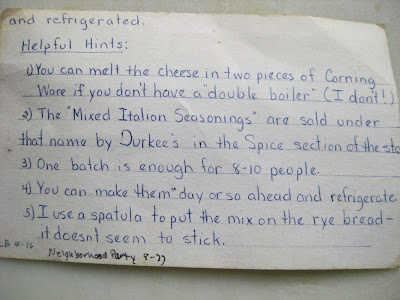 and refrigerated.
Helpful Hints:
1) You can melt the cheese in two pieces of Corning
Ware if you don't have a "double boiler" (I don't!)
2) The "Mixed Italian Seasonings" are sold under
that name by Durkee's in the Spice section of the sto
3) One batch is enough for 8-10 people.
4) You can make them "day or so ahead and refrigerate
5) I use a spatula to put the mix on the rye bread-
it doesn't seem to stick.
Neighborhood Party 8-77